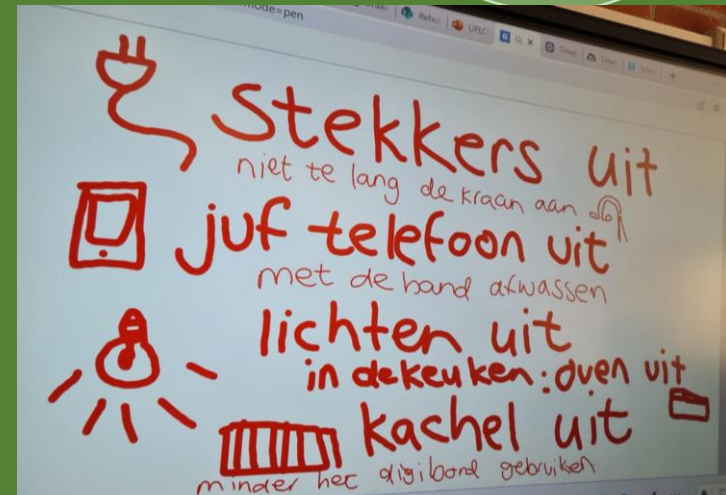 mode=pen
stekkers uit
niet te lang de kraan aan
juf telefoon uit
met de hand afwassen
lichten uit
in de keuken: oven uit
kachel uit
minder het digibord gebruiken